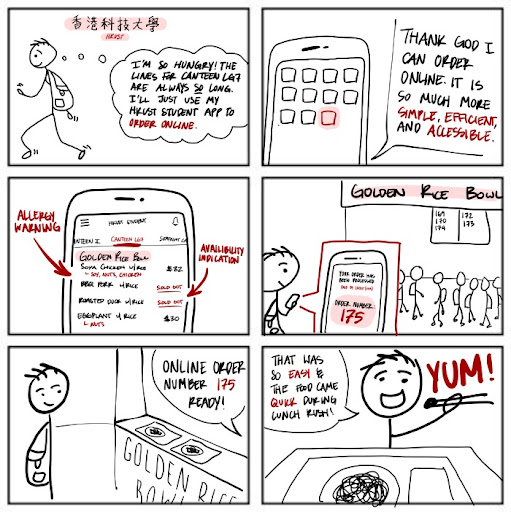 香港科技大學
HKUST
I'M SO HUNGRY! THE
LINES FOR CANTEEN LG7
ARE ALWAYS SO LONG.
I'LL JUST USE MY
HKUST STUDENT APP TO
ORDER ONLINE.
THANK GOD I
CAN ORDER
ONLINE. IT IS
SO MUCH MORE
SIMPLE, EFFICIENT,
AND ACCESSIBLE.
ALLERGY
WARNING
HKUST STUDENT
CANTEEN LG7
GOLDEN RICE BOWL
SOYA CHICKEN W/RICE $32
SOY, NUTS, CHICKEN
BBQ PORK W/RICE SOLD OUT
ROASTED DUCK W/RICE SOLD OUT
EGGPLANT W/RICE $30
NUTS
AVAILIBILITY
INDICATION
GOLDEN RICE BOWL
169 172
170 173
174
YOUR ORDER HAS
BEEN PROCESSED
ORDER NUMBER:
175
ONLINE ORDER
NUMBER 175
READY!
GOLDEN RICE
BOWL
THAT WAS
SO EASY &
THE FOOD CAME
QUICK DURING
LUNCH RUSH!
YUM!